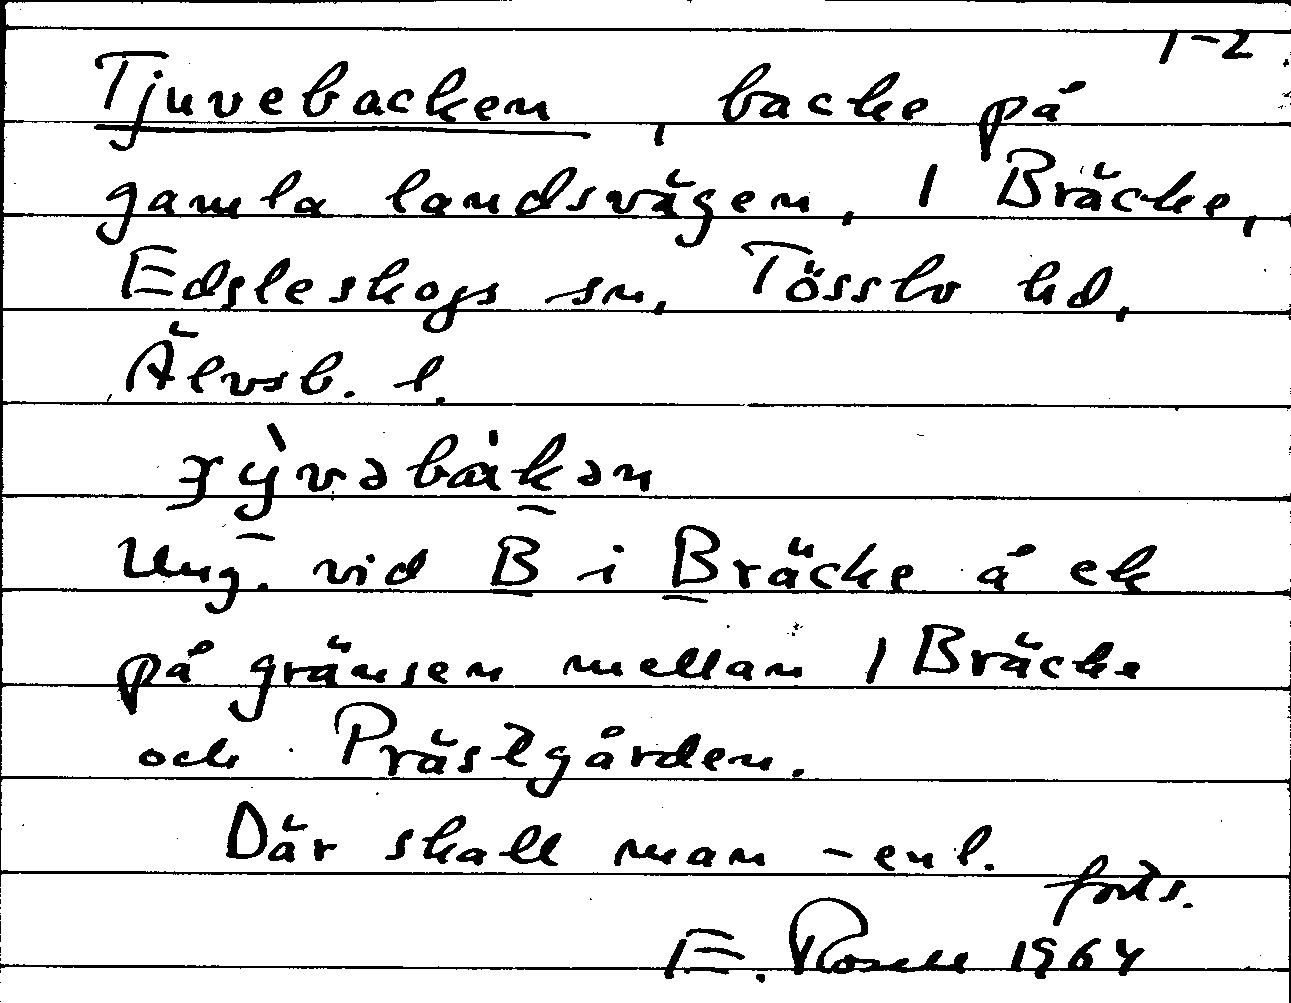 1-2
Tjuvebacken, backe på
gamla landsvägen, 1 Bräcke,
Edsleskogs sn, Tössbo hd,
Älvsb. l.
Ung. vid B i Bräcke å ek
på gränsen mellan 1 Bräcke
och Prästgården.
Där skall man - enl.
forts.
E. Rosell 1964